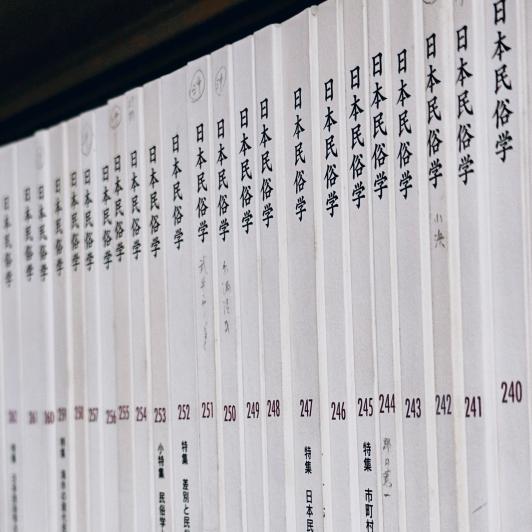 日本民俗学 240
日本民俗学 241
日本民俗学 小決 242
日本民俗学 243
日本民俗学 244
日本民俗学 245 特集 市町村
日本民俗学 246
日本民俗学 247 特集 日本民
日本民俗学 248
日本民俗学 249
日本民俗学 250
日本民俗学 251
日本民俗学 252 特集 差別と民
日本民俗学 253 小特集 民俗学
日本民俗学 254
日本民俗学 255
日本民俗学 256
日本民俗学 257
日本民俗学 258
日本民俗学 259 特集
日本民俗学 260
日本民俗学 261
日本民俗学 262 特集